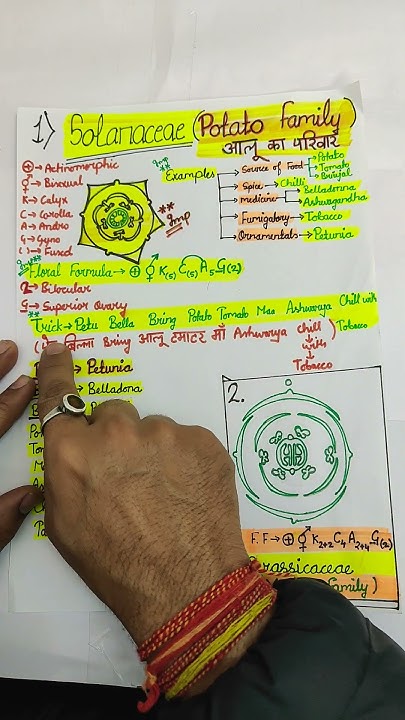 1) Solanaceae (Potato Family)
आलू का परिवार
⊕ → Actinomorphic
⚥ → Bisexual
K → Calyx
C → Corolla
A → Andro
G → Gyno
( ) → Fused
Imp **
** Imp
Examples
Source of Food → Potato
Tomato
Brinjal
Spice → Chilli
medicine → Belladonna
Ashwagandha
Fumigatory → Tobacco
Ornamentals → Petunia
Imp **
Floral Formula → ⊕ ⚥ K(5) C(5) A5 G(2)
2 → Bilocular
G → Superior Ovary
**
Trick → Petu Bella Bring Potato Tomato Maa Ashwarya Chill with Tobacco
बिल्ला Bring आलू टमाटर माँ Ashwarya chill
↓
with
↓
Tobacco
→ Petunia
→ Belladona
2.
F.F → ⊕ ⚥ K2+2 C4 A2+4 G(2)
Brassicaceae
Family)